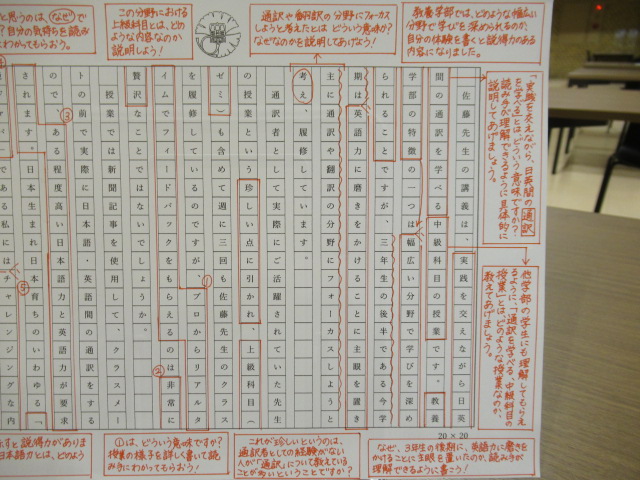 教養学部では、どのような幅広い
分野で学びを深められるのか、
自分の体験を書くと説得力のある
内容になりました。
通訳や翻訳の分野にフォーカス
しようと考えたとはどういう意味か?
なぜなのかを説明してあげよう!
この分野における
上級科目とは、どの
ような内容なのか
説明しよう!
と思うのは、なぜ
?自分の気持ちを読み
にわかってもらおう。
「実践を交えながら、日英間の通訳
を学べる」とはどういう意味ですか?
読み手が理解できるように具体的に
説明してあげましょう。
他学部の学生にも理解してもらえ
るように、「通訳を学べる、中級科目の
授業」とは、どのような授業なのか、
教えてあげましょう。
佐藤先生の講義は、実践を交えながら日英
間の通訳を学べる中級科目の授業です。教養
学部の特徴の一つは幅広い分野で学びを深め
られることですが、三年生の後半である今学
期は英語力に磨きをかけることに主眼を置き
主に通訳や翻訳の分野にフォーカスしようと
考え、履修しています。
通訳者として実際にご活躍されていた先生
の授業という珍しい点に引かれ、上級科目(
ゼミ)も含めて週に三回も佐藤先生のクラス
を履修しているのですが、①プロからリアルタ
イムでフィードバックをもらえる②のは非常に
贅沢なことではないでしょうか。
授業では新聞記事を使用して、クラスメー
トの前で実際に日本語・英語間の通訳をする
③ある程度高い日本語力と英語力が要求
されます。日本生まれ日本育ちのいわゆる「
である私にはチャレンジングな内
20×20
なぜ、3年生の後期に、英語力に磨きを
かけることに主眼を置いたのか、読み手が
理解できるように書こう!
これが珍しいというのは、
通訳者としての経験がない
人が「通訳」について教えている
ことが多いということですか?
①は、どういう意味ですか?
授業の様子を詳しく書いて読
み手にわかってもらおう!
すと説得力がありま
日本語力とは、どのよう